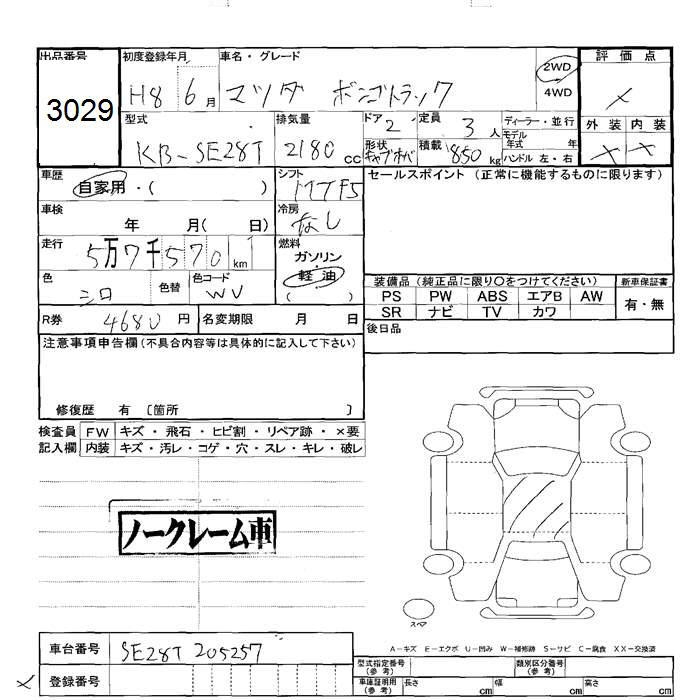 出品番号 初度登録年月 車名・グレード 評価点
3029 H8 6月 マツダ ボンゴトラック 2WD ×
4WD
型式 排気量 ドア 定員 ディーラー・並行 外装 内装
KB-SE28T 2180cc 2 3人 モデル年式 年 × ×
形状 キャブオーバ 積載 850kg ハンドル 左・右
車歴 シフト セールスポイント (正常に機能するものに限ります)
自家用・( ) MTF5
車検 冷房
年 月( 日) なし
走行 燃料
5万7千570km ガソリン
軽油
( )
色 色替 色コード 装備品 (純正品に限り○をつけてください) 新車保証書
シロ WV PS PW ABS エアB AW 有・無
SR ナビ TV カワ
R券 4680円 名変期限 月 日 後日品
注意事項申告欄(不具合内容等は具体的に記入して下さい)
修復歴 有 [箇所 ]
検査員 FW キズ・飛石・ヒビ割・リペア跡・×要
記入欄 内装 キズ・汚レ・コゲ・穴・スレ・キレ・破レ
ノークレーム車
スペア
A-キズ E-エクボ U-凹み W-補修跡 S-サビ C-腐食 XX-交換済
車台番号 SE28T 205257
型式指定番号(参考) 類別区分番号(参考)
× 登録番号
車庫証明用(参考) 長さ cm 幅 cm 高さ cm